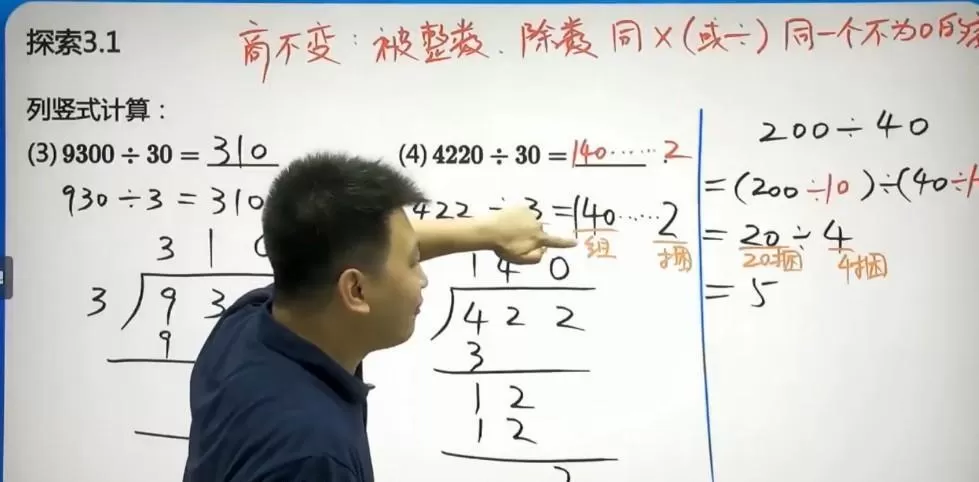 探索3.1
商不变：被整数、除数 同×(或÷) 同一个不为0的
列竖式计算：
(3) 9300 ÷ 30 = 310
930 ÷ 3 = 310
3 1 0
3 9 3
9
(4) 4220 ÷ 30 = 140······2
422 ÷ 3 = 140······2
组 捆
1 4 0
4 2 2
3
1 2
1 2
2
200 ÷ 40
= (200 ÷10) ÷ (40 ÷1
= 20 ÷ 4
20捆 4捆
= 5